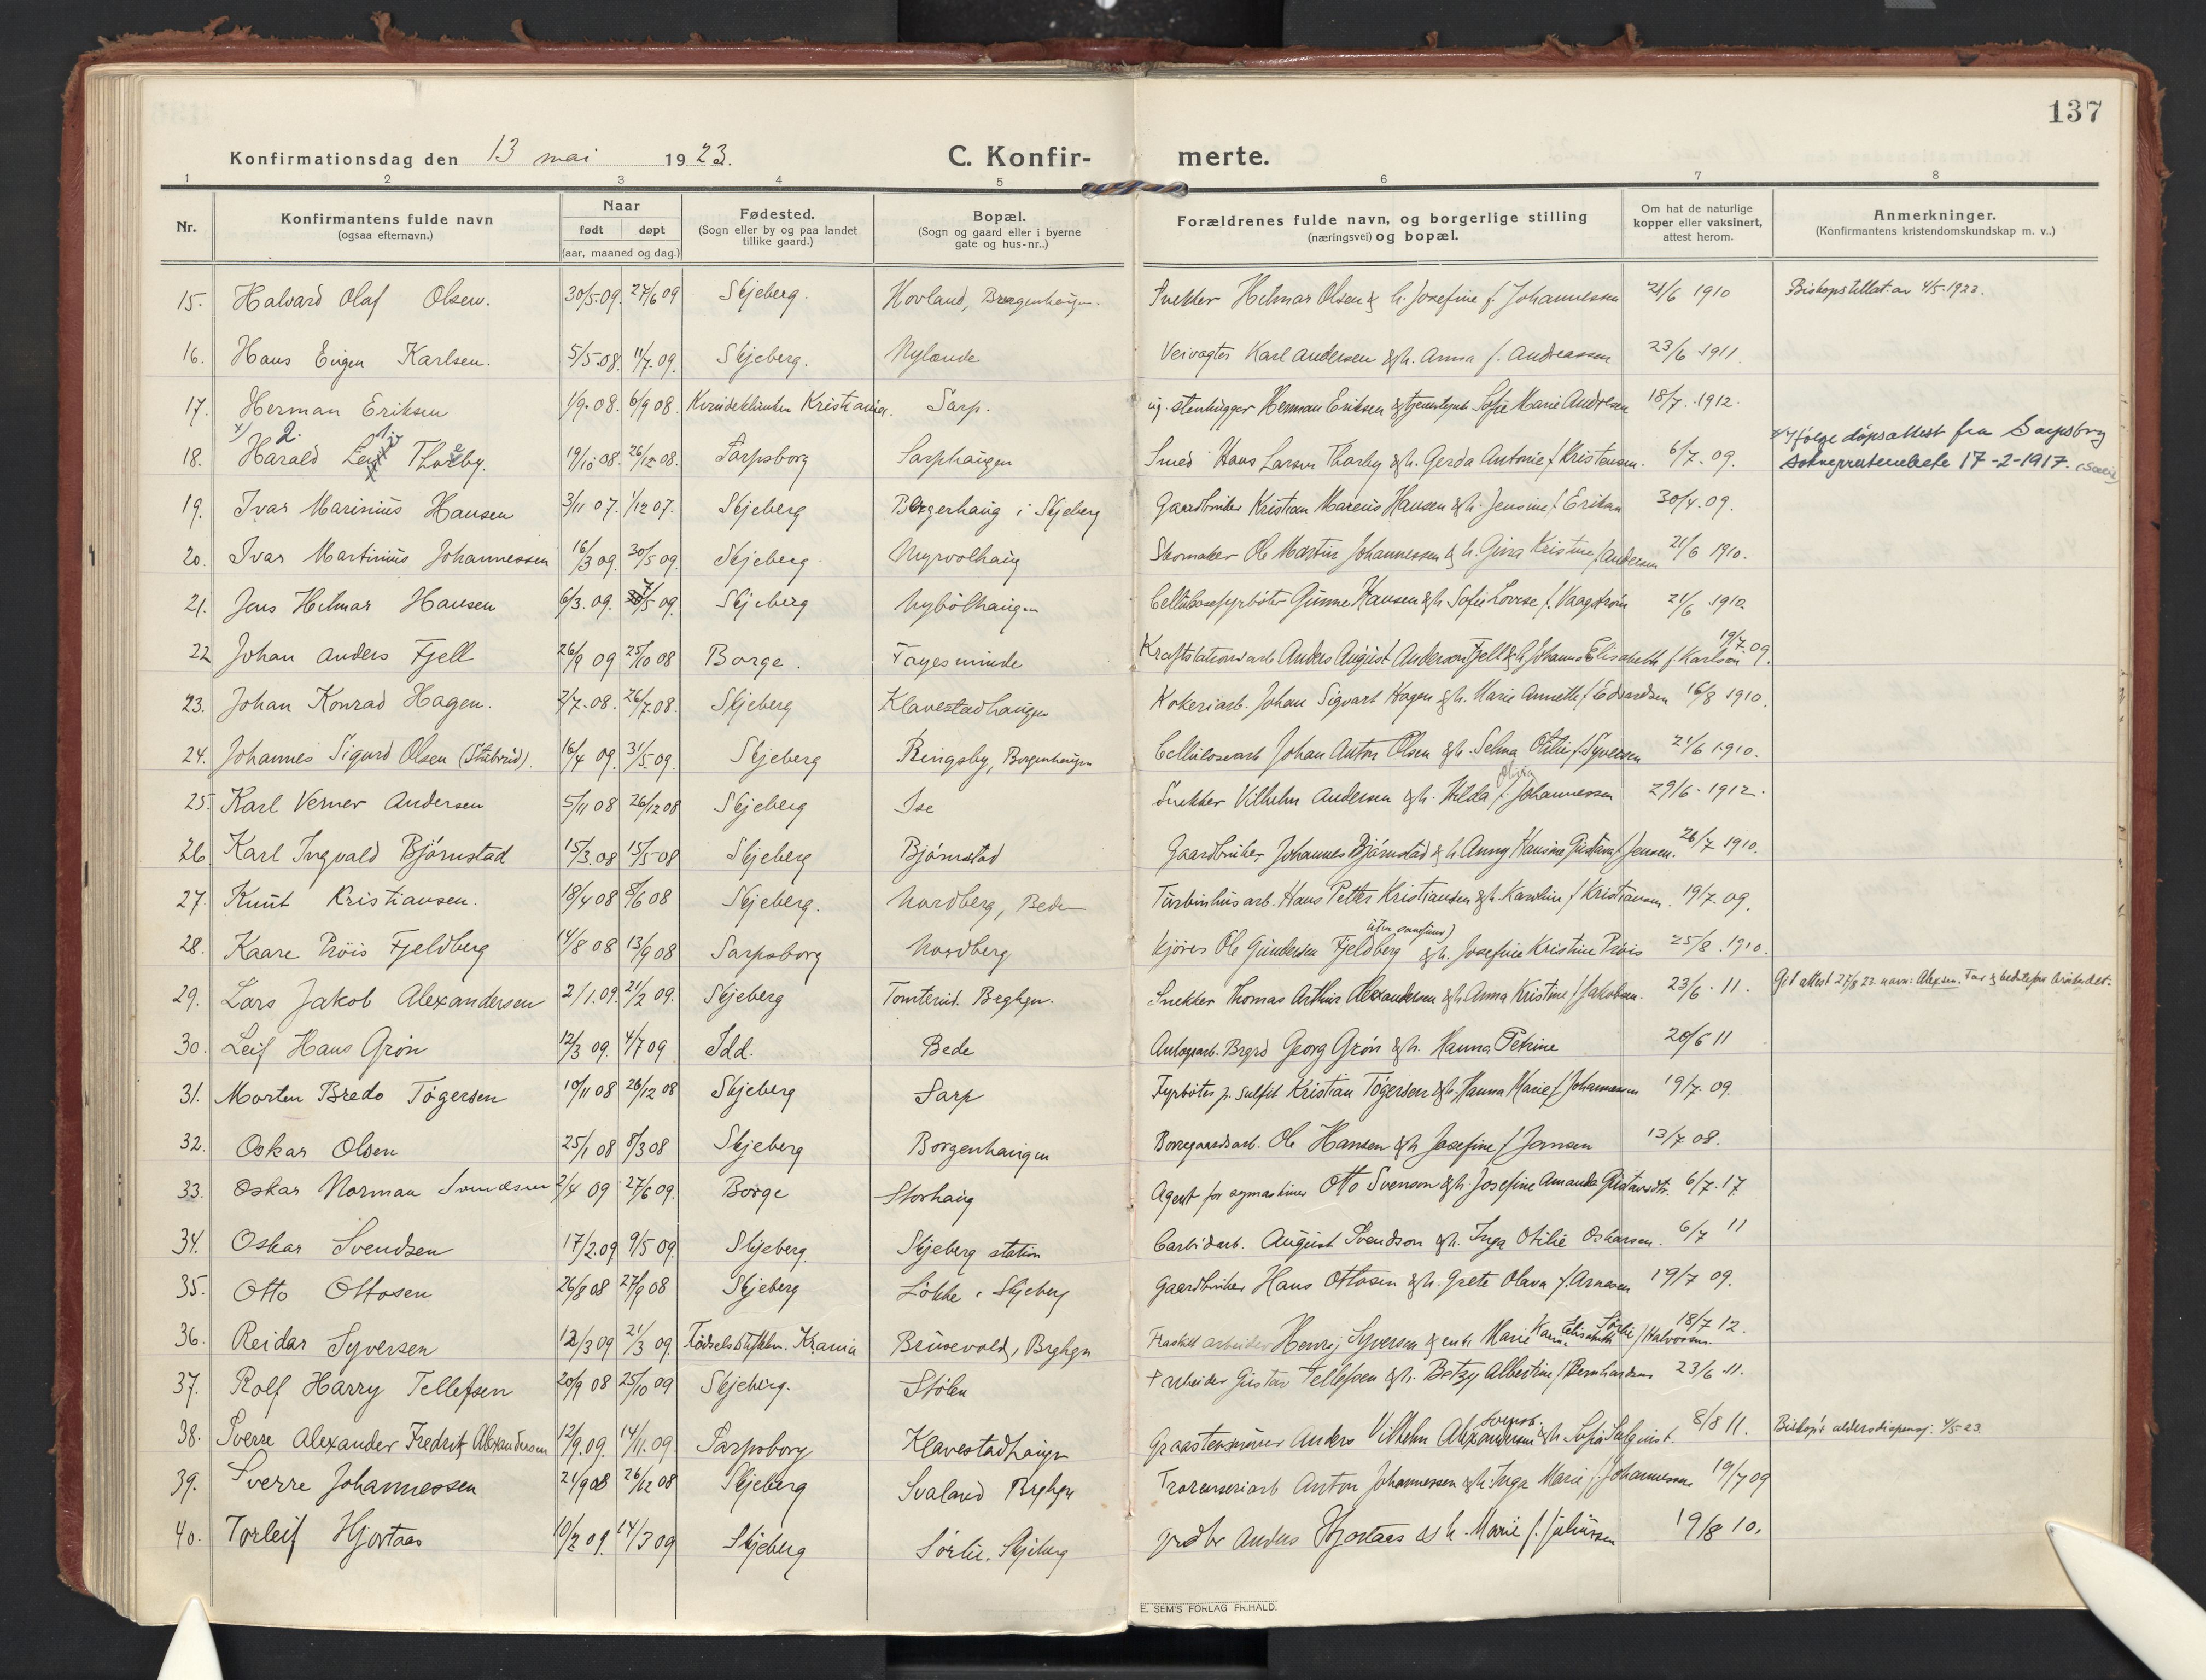 137
Konfirmationsdag den 13 mai 1923. C. Konfir- merte.
1 2 3 4 5 6 7 8
Nr. Konfirmantens fulde navn (ogsaa efternavn.) Naar født døpt (aar, maaned og dag.) Fødested. (Sogn eller by og paa landet tillike gaard.) Bopæl. (Sogn og gaard eller i byerne gate og hus-nr..) Forældrenes fulde navn, og borgerlige stilling (næringsvei) og bopæl. Om hat de naturlige kopper eller vaksinert, attest herom. Anmerkninger. (Konfirmantens kristendomskundskap m. v..)
15. Halvard Olaf Olsen. 30/5-09. 27/6 09 Skjeberg. Hovland, Borgenhaugen. Snekker Hilmar Olsen & h. Josefine f. Johannessen 21/6 1910 Biskops tillat. av 4/5-1923.
16. Hans Eugen Karlsen. 5/5-08. 11/7-09. Skjeberg. Nylende Veivogter Karl Andersen & h. Anna f. Andreassen 23/6 1911.
17. Herman Eriksen 1/9-08. 6/9 08. Kvindeklinken Kristiania. Sarp. ug. stenhugger Herman Eriksen & tjenestepike Sofie Marie Andresen 18/7-1912.
18. Harald Thoeby. 19/10 08. 26/12 08. Sarpsborg Sarphaugen Smed Hans Larsen Thorby & h. Gerda Antonie f. Kristensen. 6/7-09. ifølge dåpsattest fra Sarpsborg 17-2-1917.
19. Ivar Marinius Hansen 3/11 07. 1/12 07. Skjeberg Borgerhaug i Skjeberg Gaardbruker Kristian Mareus Hansen & h. Jensine f. Eriksen 30/4. 09.
20. Ivar Martinius Johannessen 16/3 09. 30/5 09. Skjeberg Myrvolhaug Skomaker Ole Martin Johannessen & h. Gina Kristine f. Andersen 21/6 1910.
21. Jens Hilmar Hansen 6/3. 09. 7/5 09. Skjeberg Nybölhaugen Cellulosefyrbøter Gunne Hansen & h. Sofie Lovise f. Vaagström 21/6 1910.
22 Johan Anders Fjell 26/9 09 25/10 08 Borge. Fayesminde Kraftstationsarb. Anders August Anderson Fjell & h. Johanne Elisabeth f. Karlson 19/7. 09.
23. Johan Konrad Hagen. 2/7-08. 26/7.08. Skjeberg Klavestadhaugen Kokeriarb. Johan Sigvart Hagen & h. Marie Annette f. Edvardsen 16/8 1910.
24. Johannes Sigurd Olsen (Stubrud). 16/4 09. 31/5-09. Skjeberg Ringsby, Borgenhaugen Cellulosearb. Johan Anton Olsen & h. Selma Otilie f. Syversen 21/6 1910.
25. Karl Verner Andersen 5/11 08 26/12 08 Skjeberg Ise Snekker Vilhelm Andersen & h. Hilda f. Johannessen 29/6-1912.
26. Karl Ingvald Bjørnstad 15/3.08 15/5-08 Skjeberg Bjørnstad Gaardbruker Johannes Bjørnstad & h. Anny Hansine Gustava f. Jensen. 26/7 1910.
27. Knut Kristiansen. 18/4 08 8/6 08 Skjeberg. Nordberg, Bede Turbinhusarb. Hans Petter Kristiansen & h. Karoline f. Kristiansen. 19/7 09.
28. Kaare Pröis Fjeldberg 14/8 08 13/9 08 Sarpsborg Nordberg Kjører Ole Gundersen Fjeldberg & h. Josefine Kristine Pröis 25/8.1910.
29. Lars Jakob Alexandersen 2/1.09. 21/2 09. Skjeberg Tomterud. Brghgn. Snekker Thomas Arthur Alexandersen & h. Anna Kristine f. Jakobsen. 23/6-11. Git attest 27/8 23. navn: Alexsen. Far & bedstefar
30. Leif Hans Grön 12/3 09. 4/7 09 Idd. Bede Anlægsarb. Brgrd Georg Grön & h. Hanna Petrine 20/6 11
31. Morten Bredo Tögersen 10/11 08 26/12 08 Skjeberg Sarp Fyrbøter p. sulfit Kristian Tögersen & h. Hanna Marie f. Johannessen 19/7. 09.
32. Oskar Olsen 25/1 08 8/3 08 Skjeberg Borgenhaugen Borregaardsarb. Ole Hansen & h. Josefine f. Jonsen 13/7 08.
33. Oskar Norman Svendsen 2/4 09 27/6 09. Borge Storhaug Agent for symaskiner Otto Svenson & h. Josefine Amanda Gustavsdtr. 6/7-17
34. Oskar Svendsen 17/2.09 9/5 09. Skjeberg. Skjeberg station Carbidarb. August Svendson & h. Inga Otilie Oskarsen. 6/7 11
35. Otto Ottosen 26/8 08 27/9 08 Skjeberg Lökke i Skjeberg Gaardbruker Hans Ottosen & h. Grete Olava f. Arnesen 19/7 09.
36. Reidar Syversen 12/3 09 21/3 09. Fødselsstiftelsen. Krania Bruevold, Brghgn Fraskilt arbeider Henrij Syversen & enke Marie Karn. Elisabeth Sørlie f. Halvorsen. 18/7 12.
37. Rolf Harry Tellefsen 20/9 08 25/10 09 Skjeberg. Stölen Arbeider Gustav Tellefsen & h. Betzy Albertine f. Bernhardsen 23/6 11.
38. Sverre Alexander Fredrik Alexandersen 12/9.09. 14/11.09. Sarpsborg Klavestadhaugen Graastensmurer Anders Vilhelm Alexandersen & h. Sofie Selqvist. 8/8 11. Biskop's aldersdispens. 4/5-23.
39. Sverre Johannessen 21/9 08 26/12 08 Skjeberg Svaland Brghgn Anton Johannessen & h. Inga Marie f. Johannessen 19/7 09
40. Torleif Hjortaas 10/2 09. 14/3 09 Skjeberg Sörlie. Skjeberg grdbr Anders Hjortaas & h. Marie f. Juliussen 19/8 10.
E. SEM'S FORLAG FR.HALD.